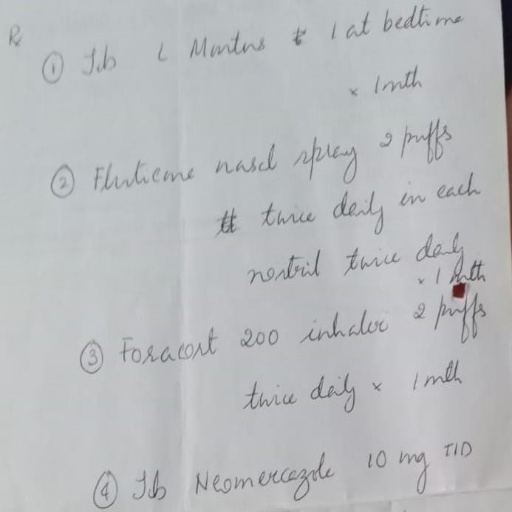 Rx
① Tab L Montus t 1 at bedtime
x 1 mth
② Fluticone nasal spray 2 puffs
tt twice daily in each
nostril twice daily
x 1 mth
③ Foracort 200 inhaler 2 puffs
twice daily x 1 mth
④ Tab Neomercazole 10 mg TID